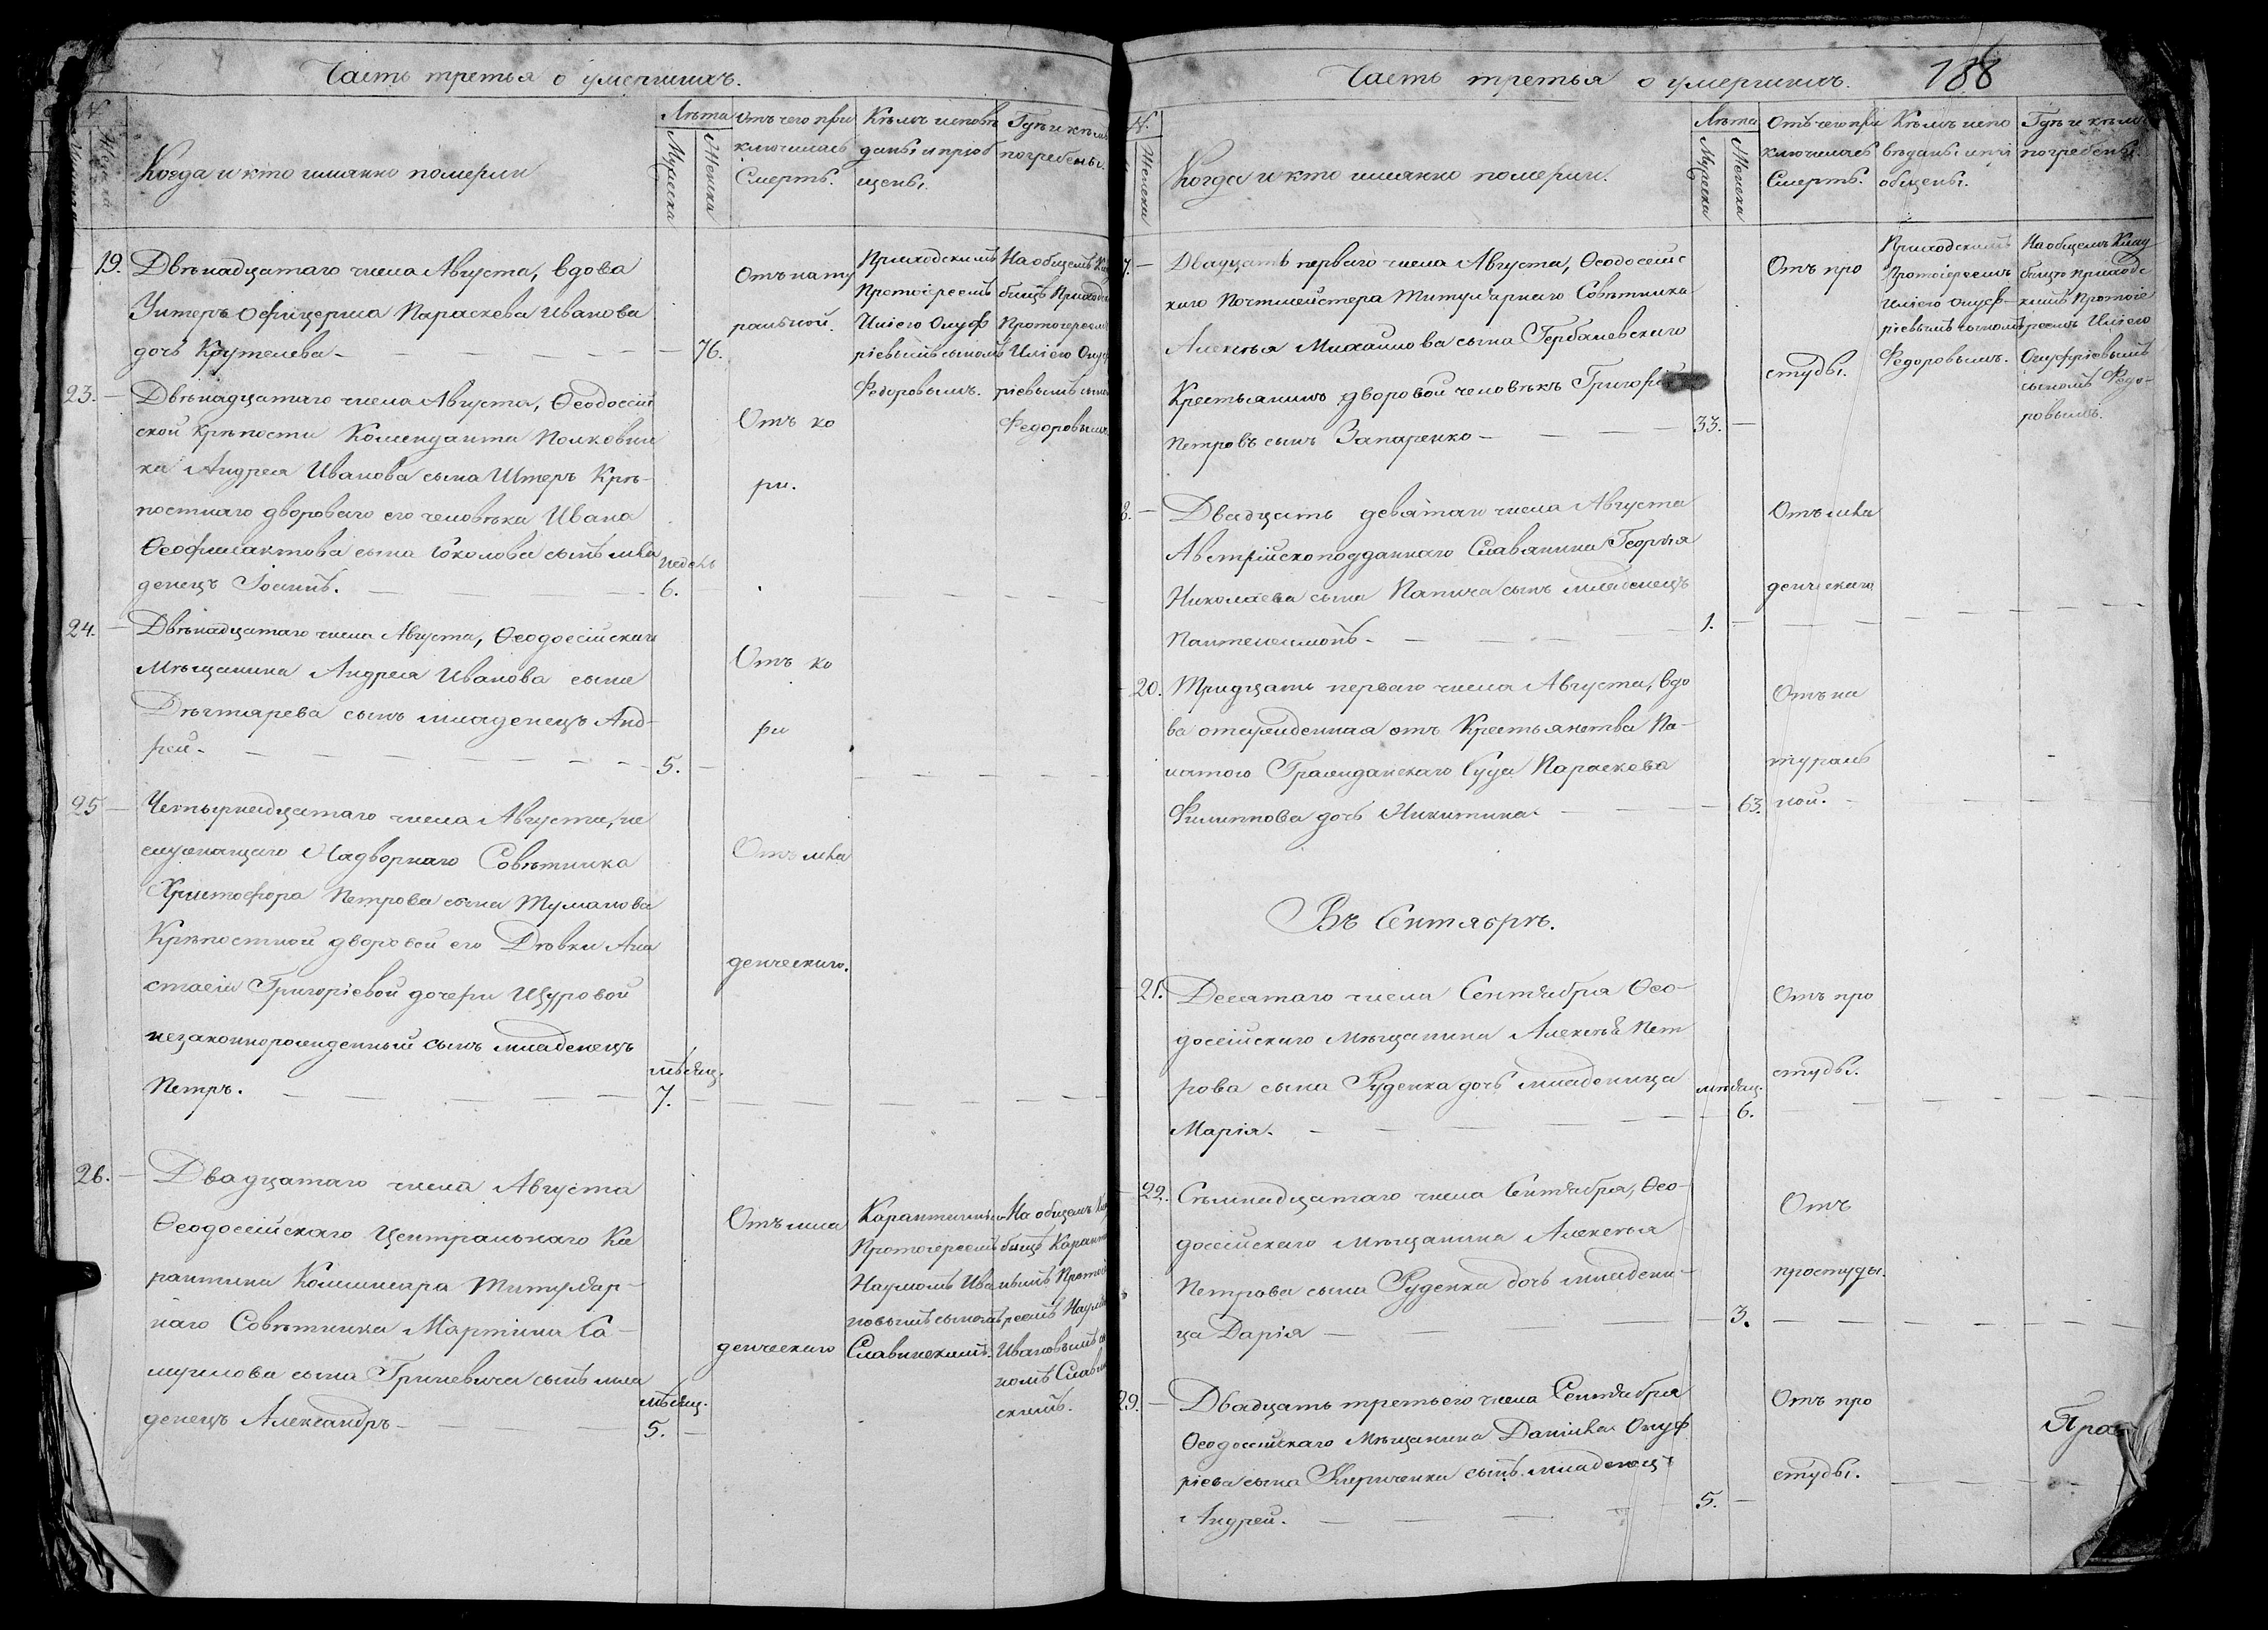 Часть третья о умершихъ.
Когда и кто имянно померли
Лѣта
Мужеска
Женска
Отъ чего при
ключилась
Смерть.
Кѣмъ исповѣ
даны и пріоб
щены.
Гдѣ и кѣмъ
погребены.
19.
Двѣнадцатаго числа Августа, вдова
Унтеръ офицерша Параскева Иванова
дочь Крутелева
76.
Отъ нату
ральной.
Приходскимъ
Протоіреемъ
Иліею Онуф
ріевымъ сыномъ
Федоровымъ.
На общемъ
бищѣ
Протоіереемъ
Иліею
ріевымъ
Федоровымъ
23.
Двѣнадцатаго числа Августа, Ѳеодосій
ской крѣпости Коменданта Полковни
ка Андрея Иванова сына Штеръ Крѣ-
постнаго двороваго его человѣка Ивана
Ѳеофилактова сына Соколова сынъ мла
денецъ Іоаннъ.
недель
6.
Отъ ко
ри.
24.
Двѣнадцатаго числа Августа, Ѳеодосійскаго
Мѣщанина Андрея Иванова сына
Дѣхтярева сынъ младенецъ Анд-
рей.
5.
Отъ ко
ри
25
Четырнадцатаго числа Августа, не
служащаго Надворнаго Совѣтника
Христофора Петрова сына Туманова
Крѣпостной дворовой его Дѣвки Ана
стасіи Григоріевой дочери Щуровой
незаконнорожденный сынъ младенецъ
Петръ.
мѣсяц.
7.
Отъ мла
денческаго.
26.
Двадцатаго числа Августа
Ѳеодосійскаго Центральнаго Ка
рантина Коммисара Титуляр-
наго Совѣтника Мартина Са-
муилова сына Гриневича сынъ мла
денецъ Александръ
мѣсяц.
5.
Отъ мла
денческаго
Карантиннымъ
Протоіереемъ
Наумомъ Ива
новымъ сыномъ
Славинскимъ.
На общемъ
бищѣ
нымъ
реемъ
Ивановымъ
номъ
скимъ.
Часть третья о умершихъ.
188
Женска
Когда и кто имянно померли.
Лѣта
Мужеска
Женска
Отъ чего при
ключилась
Смерть.
Кѣмъ испо
вѣданы и прі
общены.
Гдѣ и кѣмъ
погребены.
7.
Двадцать перваго числа Августа, Ѳеодосійс
каго Почтмейстера Титулярнаго Совѣтника
Алексѣя Михаилова сына Гербаневскаго
Крестьянинъ дворовой человѣкъ Григорій
Петровъ сынъ Запаренко
33.
Отъ про
студы.
Приходскимъ
Протоіереемъ
Иліею Онуф-
ріевымъ сыномъ
Федоровымъ.
На общемъ Клад
бищѣ приходс
кимъ Протоіе
реемъ Иліею
Онуфріевымъ
сыномъ Федо-
ровымъ.
8.
Двадцать девятаго числа Августа
Австрійскоподданнаго Славянина Георгія
Николаева сына Папича сынъ младенецъ
Пантелеимонъ
1.
Отъ мла
денческаго
20.
Тридцать перваго числа Августа, вдо
ва отсужденная отъ Крестьянства Па-
латою Гражданскаго Суда Параскева
Филиппова дочь Никитина.
63.
Отъ на
тураль
ной.
Въ Сентябрѣ.
21.
Десятаго числа Сентября Ѳео-
досійскаго Мѣщанина Алексѣя Пет
рова сына Руденка дочь младеница
Марія.
мѣсяц.
6.
Отъ про
студы.
22.
Семнадцатаго числа Сентября, Ѳео-
досійскаго мѣщанина Алексѣя
Петрова сына Руденка дочь младени-
ца Дарія
3.
Отъ
простуды.
29.
Двадцать третьего числа Сентября
Ѳеодосійскаго Мѣщанина Даніила Онуф
ріева сына Кириченка сынъ младенецъ
Андрей.
5.
Отъ про
студы.